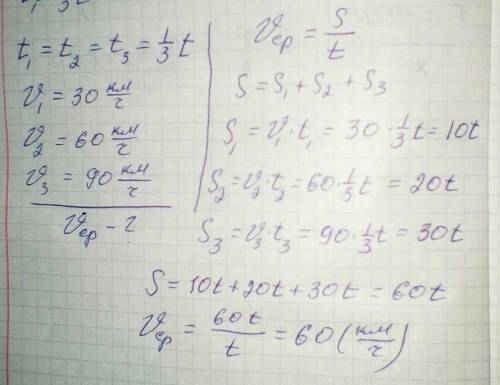 t₁ = t₂ = t₃ = 1/3 t
v₁ = 30 км/ч
v₂ = 60 км/ч
v₃ = 90 км/ч
vср - ?
vср = S/t
S = S₁ + S₂ + S₃
S₁ = v₁·t₁ = 30·1/3 t = 10t
S₂ = v₂·t₂ = 60·1/3 t = 20t
S₃ = v₃·t₃ = 90·1/3 t = 30t
S = 10t + 20t + 30t = 60t
vср = 60t/t = 60 (км/ч)